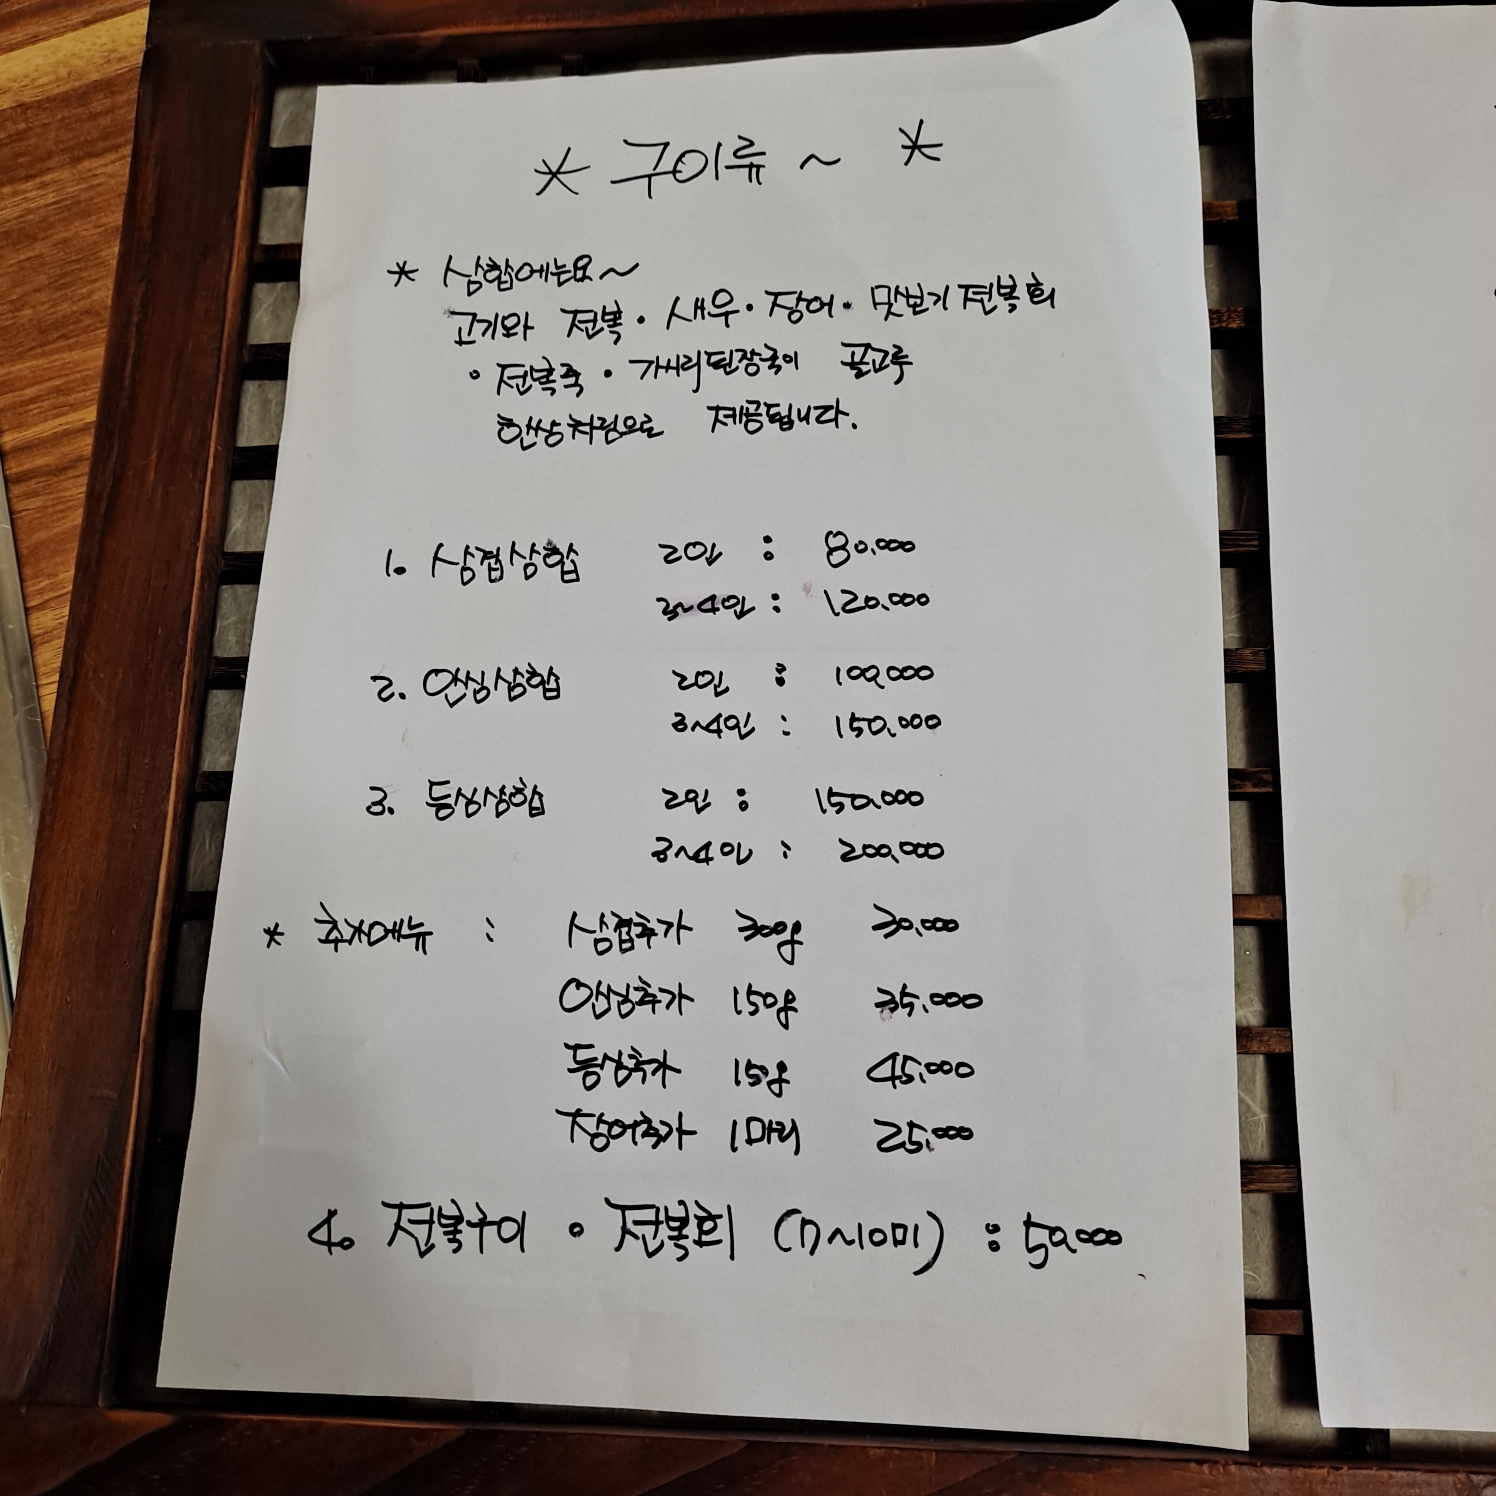 * 구이류 ~ *
* 삼합에는요~
고기와 전복 · 새우 · 장어 · 맛보기 전복회
· 전복죽 · 가시리된장국이 골고루
한상차림으로 제공됩니다.
1. 삼겹삼합 2인 : 80.000
3~4인 : 120.000
2. 안심삼합 2인 : 100.000
3~4인 : 150.000
3. 등심삼합 2인 : 150.000
3~4인 : 200.000
* 추가메뉴 : 삼겹추가 300g 30.000
안심추가 150g 35.000
등심추가 150g 45.000
장어추가 1마리 25.000
4. 전복구이 · 전복회 (7~10미) : 50.000